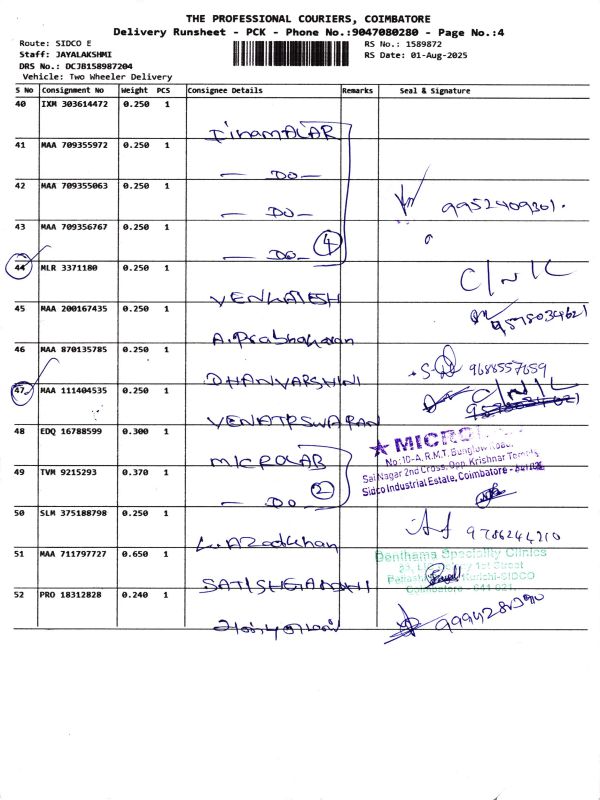 THE PROFESSIONAL COURIERS, COIMBATORE
Delivery Runsheet - PCK - Phone No.:9047080280 - Page No.:4
Route: SIDCO E
RS No.: 1589872
Staff: JAYALAKSHMI
RS Date: 01-Aug-2025
DRS No.: DCJB158987204
Vehicle: Two Wheeler Delivery
S No Consignment No Weight PCS Consignee Details Remarks Seal & Signature
40 IXM 303614472 0.250 1
InamALAR
41 MAA 709355972 0.250 1
— DO —
42 MAA 709355063 0.250 1
— DO — 9952409361.
43 MAA 709356767 0.250 1
— DO — 4
44 MLR 3371180 0.250 1 C/N/C
VENKATESH
45 MAA 200167435 0.250 1 9578034621
A. Prabhakaran
46 MAA 870135785 0.250 1 9688557659
DHANVARSHINI
47 MAA 111404535 0.250 1 C/N/C
48 EDQ 16788599 0.300 1
MICROLAB
MICRO
No: 10-A, R.M.T. Bunglow Road,
Sai Nagar 2nd Cross, Opp. Krishnar Temple
Sidco Industrial Estate, Coimbatore -
49 TVM 9215293 0.370 1
— DO — 2
50 SLM 375188798 0.250 1 9786244210
L. AzadKhan
51 MAA 711797727 0.650 1
Denthama Speciality Clinics
1st Street
Kurichi-SIDCO
Coimbatore - 641 021.
SATISHGANDHI
52 PRO 18312828 0.240 1 9994281390